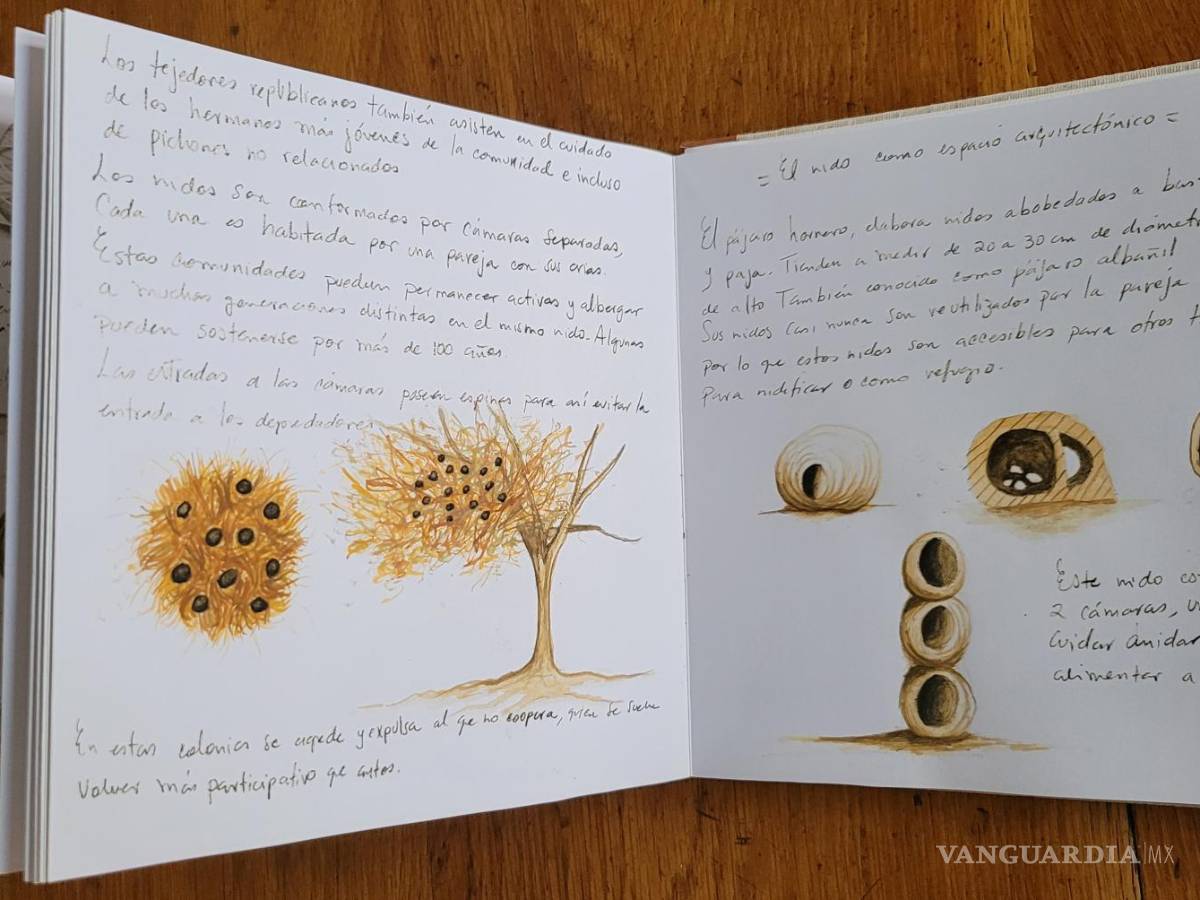 Los tejedores republicanos también asisten en el cuidado
de los hermanos más jóvenes de la comunidad e incluso
de pichones no relacionados
Los nidos son conformados por cámaras separadas,
Cada una es habitada por una pareja con sus crías.
Estas comunidades pueden permanecer activas y albergar
a muchas generaciones distintas en el mismo nido. Algunas
pueden sostenerse por más de 100 años.
Las entradas a las cámaras poseen espinas para así evitar la
entrada a los depredadores
En estas colonias se agrede y expulsa al qe no coopera, quien se suele
volver más participativo qe antes.
= El nido como espacio arquitectónico =
El pájaro hornero, elabora nidos abobedados a
y paja. Tienden a medir de 20 a 30 cm de
de alto También conocido como pájaro albañil
Sus nidos casi nunca son reutilizados por la pareja
por lo que estos nidos son accesibles para otros
para nidificar o como refugio.
Este nido
2 cámaras,
cuidar
alimentar a
VANGUARDIA MX